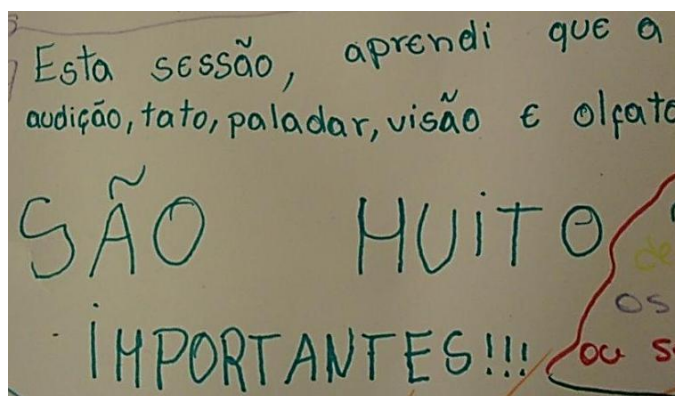 Esta sessão, aprendi que a
audição, tato, paladar, visão e olfato
SÃO MUITO
de
os
iMPORTANTES!!!
ou